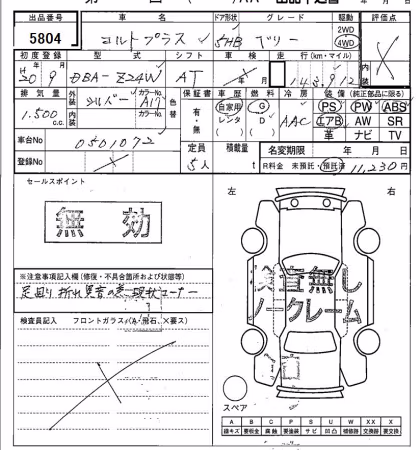 出品番号 車名 ドア形状 グレード 駆動 評価点
5804 コルトプラス 5HB ベリー 2WD 4WD
初度登録 型式 シフト 車検 走行(km・マイル) 内装
H20 9 DBA-Z24W AT 年 月
排気量 外装 シルバー カラーNo. A17 色替 保証書 車歴 燃料 冷房 装備(純正部品に限る)
1.500 c.c. 内装 カラーNo. 有・無 自家用 レンタ G D AAC PS PW ABS
エアB AW SR
革 ナビ TV
車台No 0501072 定員 積載量 名変期限 年 月
登録No 5人 t R料金 未預託・預託済 11,230円
セールスポイント
左 右
無効
検査無し
ノークレーム
※注意事項記入欄(修復・不具合箇所および状態等)
足廻り
現状コーナー
検査員記入 フロントガラス(A・飛石、×要ス)
スペア
A B C P S U W X XX
線キズ 要板金 腐蝕 要塗装 サビ 凹凸 補修跡 交換跡 要交換